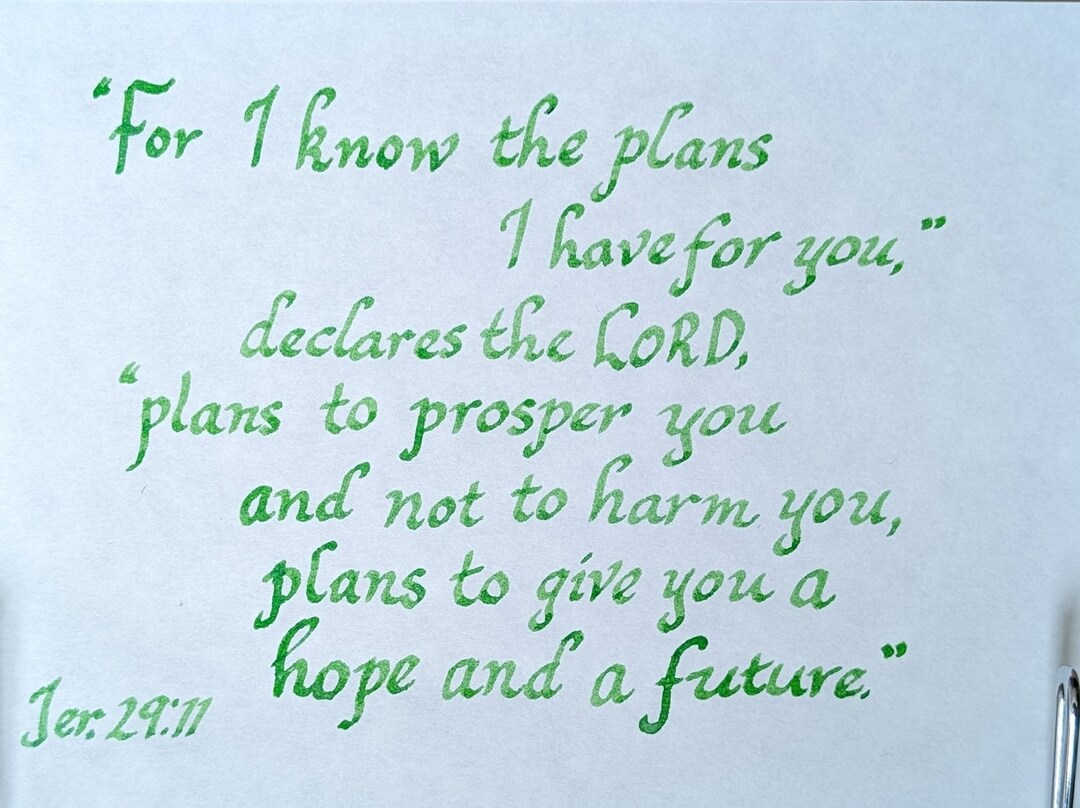 “For I know the plans
I have for you,”
declares the LORD,
“plans to prosper you
and not to harm you,
plans to give you a
hope and a future.”
Jer. 29:11